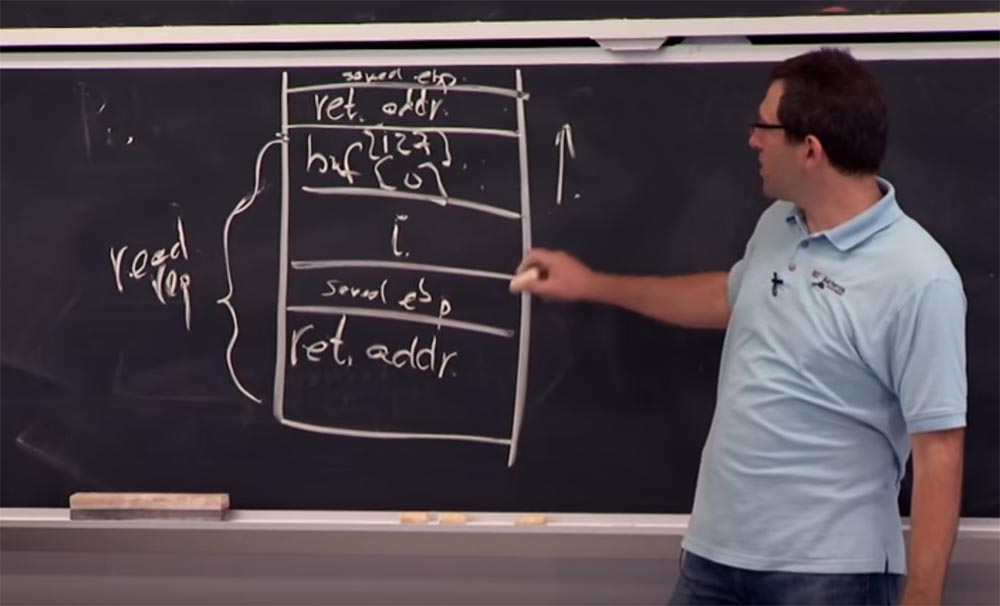 saved ebp
ret. addr.
buf [127]
[0]
i.
saved ebp
ret. addr.
read
req